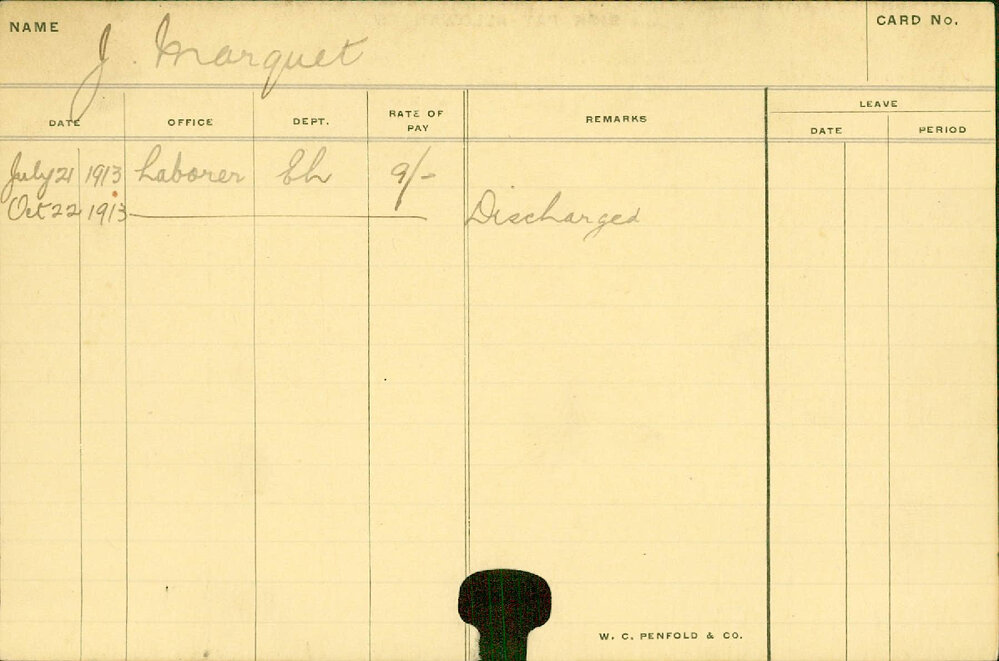 NAME J. Marquet CARD No.
DATE OFFICE DEPT. RATE OF PAY REMARKS LEAVE DATE PERIOD
July 21 1913 Laborer Eh 9/-
Oct 22 1913 Discharged
W. C. PENFOLD & CO.